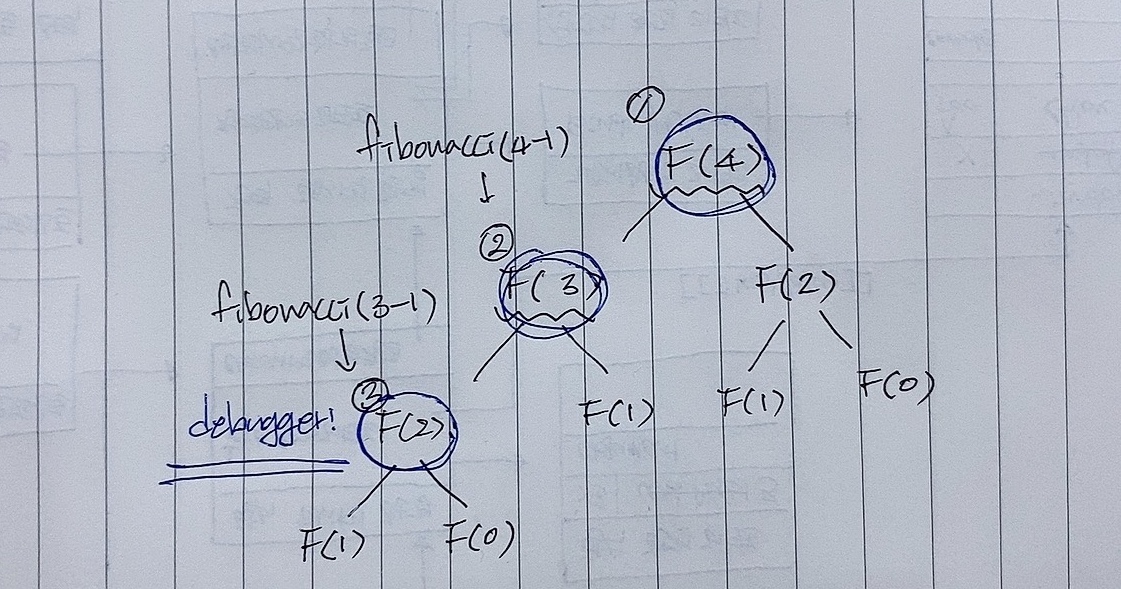 ①
fibonacci(4-1)
F(4)
↓
②
F(3)
F(2)
fibonacci(3-1)
↓
③
F(2)
debugger!
F(1)
F(1)
F(0)
F(1)
F(0)